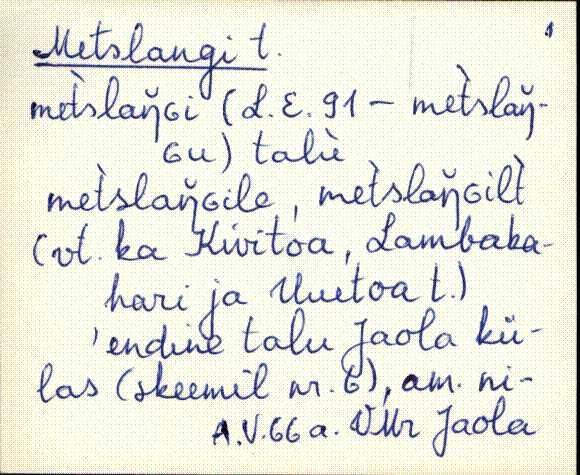 1
Metslangi t.
met̀slaŋ̆ɢi (L.E. 91 – met̀slaŋ̆-
ɢu) talù
met̀slaŋ̆ɢile, met̀slaŋ̆ɢilt̀
(vt. ka Kivitoa, Lambaka-
hari ja Uuetoa t.)
'endine talu Jaola kü-
las (skeemil nr. 6), am. ni-
A.V. 66 a. VMr Jaola